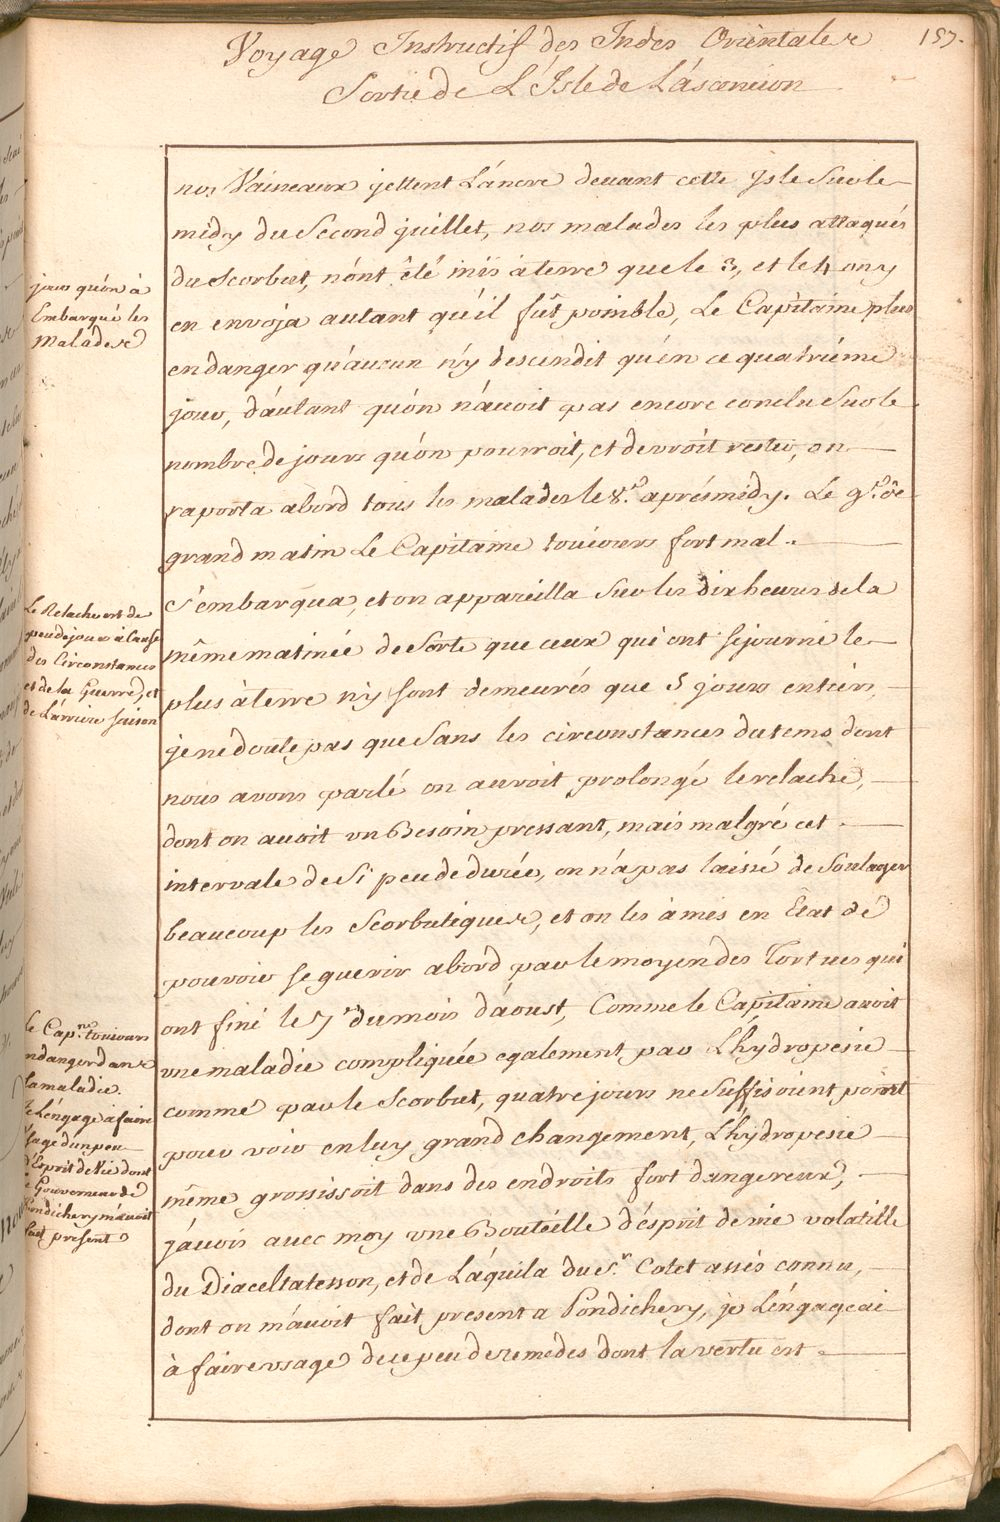 Voyage Instructif des Indes Orientales
157.
Sortie de L'Isle de L'áscencion
nos Vaisseaux jettent L'áncre devant cette Isle Sur le
midy du Second juillet, nos malades les plus attaqués
du Scorbut, n'ont été mis à terre que le 3, et le 4 on y
en envoja autant qu'il fût possible, Le Capitaine plus
en danger qu'áucun n'y descendit qu'en ce quatriéme
jour, d'áutant qu'ón n'ávoit pas encore conclu Sur le
nombre de jours qu'ón pourroit, et devroit rester, on
raporta abord tous les malades le 8.e aprésmidy. Le 9.e de
grand matin Le Capitaine toujours fort mal.
S'embarqua, et on appareilla Sur les dix heures de la
même matinée de Sorte que ceux qui ont sejourné le
plus à terre n'y sont demeurés que 5 jours entiers,
je ne doute pas que Sans les circonstances du tems dont
nous avons parlé on auroit prolongé le relache,
dont on avoit un Besoin pressant, mais malgré cet
intervale de Si peu de durée, on n'a pas laissé de Soulager
beaucoup les Scorbutiques, et on les à mis en Etat de
pouvoir se guerir abord par le moyen des Tortues qui
ont finé le 7.e du mois d'áoust, Comme le Capitaine avoit
une maladie compliquée egalement par L'hydropesie
comme par le Scorbut, quatre jours ne Suffisoient point
pour voir en luy grand changement, L'hydropesie
même grossissoit dans des endroits fort dangereux,
j'ávois avec moy une Boutéille d'ésprit de vie volatille
du Diaceltatesson, et de L'áquila du S.r Cotet assés connu,
dont on m'ávoit fait present a Pondichery, je L'éngageai
à faire usage de ce peu de remedes dont la vertu est
jour qu'ón à
Embarqué les
malades
Le Relache est de
peu de jour à cause
des Circonstances
et de la Guerre, et
de L'árriere saison
le Cap.ne toujours
en danger dans
la maladie.
je L'éngage a faire
usage d'un peu
d'Esprit de Vie dont
le Gouverneur de
Pondichery m'ávoit
fait present